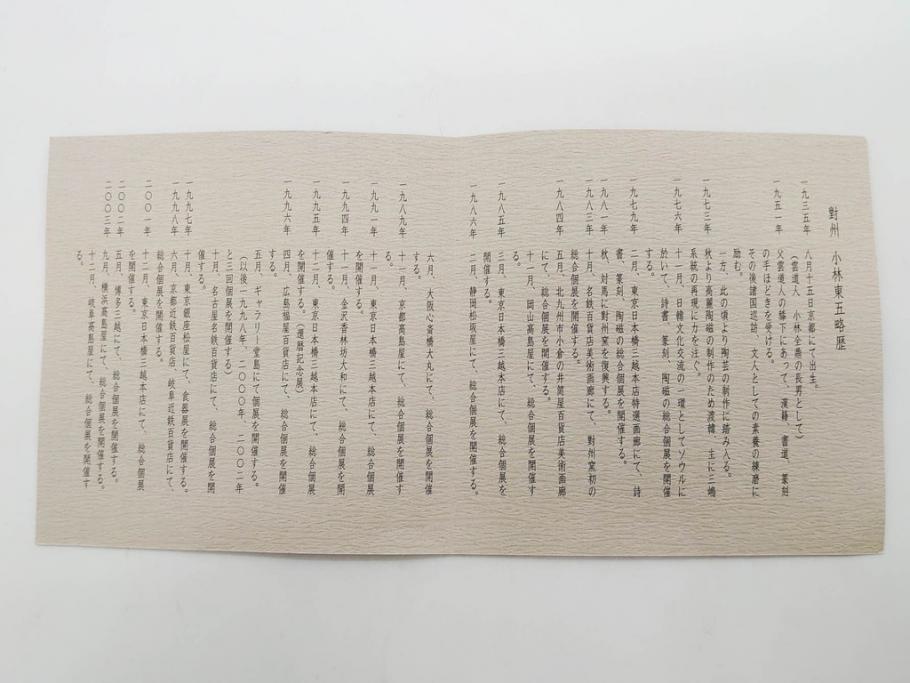 對州　小林東五略歴
一九三五年　八月十五日京都にて出生。
（雲道人　小林全鼎の長男として）
一九五一年　父雲道人の膝下にあって、漢籍、書道、篆刻
の手ほどきを受ける。
その後諸国巡訪、文人としての素養の練磨に
励む。
一方、此の頃より陶芸の制作に踏み入る。
一九七三年　秋より高麗陶磁の制作のため渡韓　主に三嶋
系統の再現に力を注ぐ。
一九七六年　十一月、日韓文化交流の一環としてソウルに
於いて、詩書、篆刻、陶磁の総合個展を開催
する。
一九七九年　二月、東京日本橋三越本店特選画廊にて、詩
書、篆刻、陶磁の総合個展を開催する。
一九八一年　秋、対馬に對州窯を復興する。
一九八三年　十月、名鉄百貨店美術画廊にて、對州窯初の
総合個展を開催する。
一九八四年　五月、北九州市小倉の井筒屋百貨店美術画廊
にて、総合個展を開催する。
十一月、岡山高島屋にて、総合個展を開催す
る。
一九八五年　三月、東京日本橋三越本店にて、総合個展を
開催する。
一九八六年　二月、静岡松坂屋にて、総合個展を開催する。
六月、大阪心斎橋大丸にて、総合個展を開催
する。
一九八九年　十一月、京都高島屋にて、総合個展を開催す
る。
一九九一年　十一月、東京日本橋三越本店にて、総合個展
を開催する。
一九九四年　十一月、金沢香林坊大和にて、総合個展を開
催する。
一九九五年　十二月、東京日本橋三越本店にて、総合個展
を開催する。（還暦記念展）
一九九六年　四月、広島福屋百貨店にて、総合個展を開催
する。
五月、ギャラリー堂島にて個展を開催する。
（以後一九九八年、二〇〇〇年、二〇〇二年
と三回個展を開催する）
十月、名古屋名鉄百貨店にて、総合個展を開
催する。
一九九七年　十月、東京銀座松屋にて、食器展を開催する。
一九九八年　六月、京都近鉄百貨店、岐阜近鉄百貨店にて、
総合個展を開催する。
二〇〇一年　十二月、東京日本橋三越本店にて、総合個展
を開催する。
二〇〇二年　五月、博多三越にて、総合個展を開催する。
二〇〇三年　九月、横浜高島屋にて、総合個展を開催する。
十二月、岐阜高島屋にて、総合個展を開催す
る。